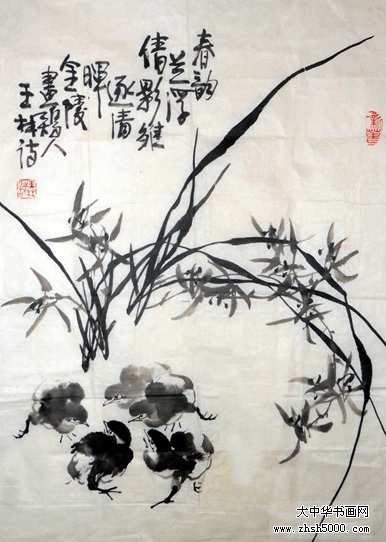 春韵
兰浮
倩影雏
逐青
晖
金陵
畫人
王林诗
大中华书画网
www.zhsh5000.com